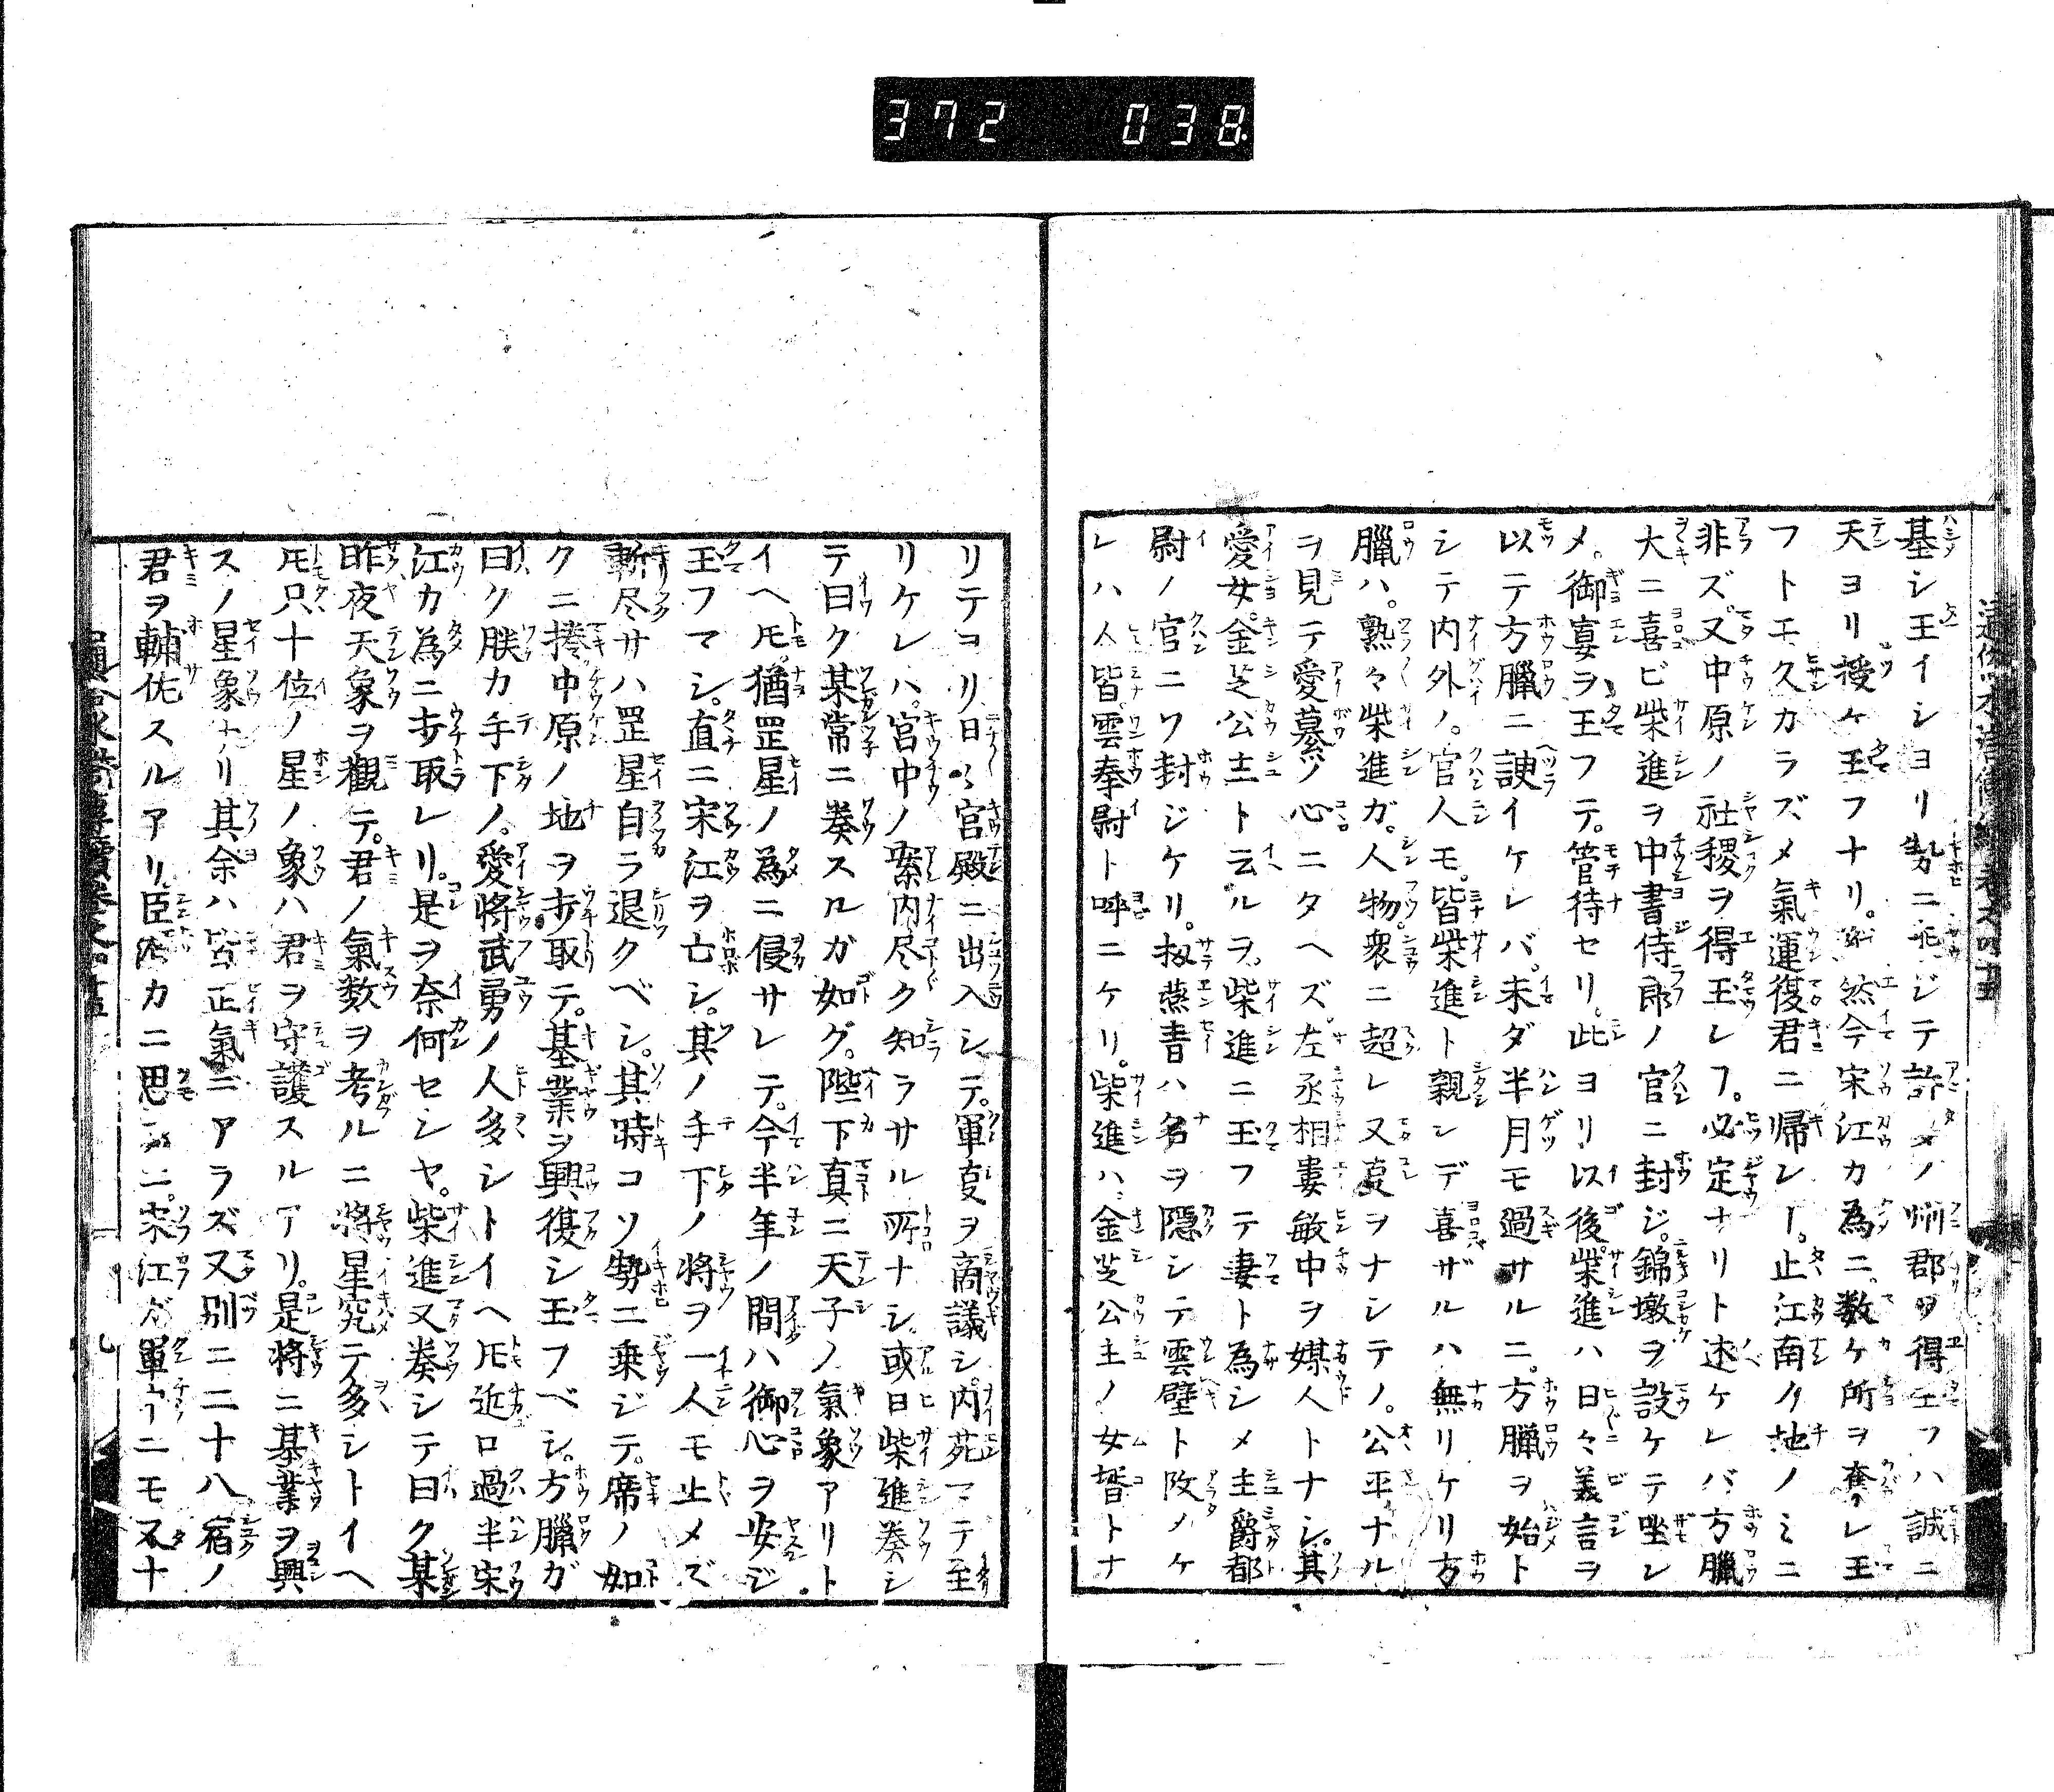 372 038
基シ玉イショリ勢ニ乗ジテ許タノ州郡ヲ得玉フハ誠ニ
天ヨリ授ケ玉フナリ。然今宋江カ為ニ。数ケ所ヲ奪レ玉
フトモ久カラズメ氣運復君ニ帰レ。止江南ノ地ノミニ
非ズ。又中原ノ社稷ヲ得玉レフ。必定ナリト述ケレバ方臘
大ニ喜ビ柴進ヲ中書侍郎ノ官ニ封ジ。錦墩ヲ設ケテ坐レ
メ。御宴ヲ玉フテ。管待セリ。此ヨリ以後柴進ハ日々義言ヲ
以テ方臘ニ諛イケレバ。未ダ半月モ過サルニ。方臘ヲ始ト
シテ内外ノ。官人モ。皆柴進ト親シデ喜ザルハ無リケリ方
臘ハ。熟々柴進ガ。人物。衆ニ超レ又夏ヲナシテノ。公平ナル
ヲ見テ愛慕ノ心ニタヘズ。左丞相婁敏中ヲ媒人トナシ。其
愛女。金芝公主ト云ルヲ。柴進ニ玉フテ妻ト為シメ主爵都
尉ノ官ニソ封ジケリ。扨燕青ハ名ヲ隠シテ雲壁ト改メケ
レハ人皆。雲奉尉ト呼ニケリ。柴進ハ金芝公主ノ女壻トナ
リテヨリ日々宮殿ニ出入シテ。軍夏ヲ商議シ。内苑マテ至
リケレハ。宮中ノ案内尽ク知ラサル所ナシ。或日柴進奏シ
テ曰ク某常ニ奏スルガ如グ。陛下真ニ天子ノ氣象アリト
イヘ𪜈猶罡星ノ為ニ侵サレテ。今半年ノ間ハ御心ヲ安ジ
玉フマシ。直ニ宋江ヲ亡シ。其ノ手下ノ将ヲ一人モ止メズ
斬尽サハ罡星自ラ退クベシ。其時コソ勢ニ乗ジテ。席ノ如
クニ捲中原ノ地ヲ步取テ。基業ヲ興復シ玉フベシ。方臘ガ
曰ク朕カ手下ノ。愛将武勇ノ人多シトイヘ𪜈近口過半宋
江カ為ニ步取レリ。是ヲ奈何セシヤ。柴進又奏シテ曰ク某
昨夜天象ヲ觀テ。君ノ氣数ヲ考ルニ将星究テ多シトイヘ
𪜈只十位ノ星ノ象ハ君ヲ守護スルアリ。是将ニ基業ヲ興
スノ星象ナリ其余ハ皆正氣ニアラズ又別ニ二十八宿ノ
君ヲ輔佐スルアリ。臣カニ思ニ。宋江ガ軍ニモ又十